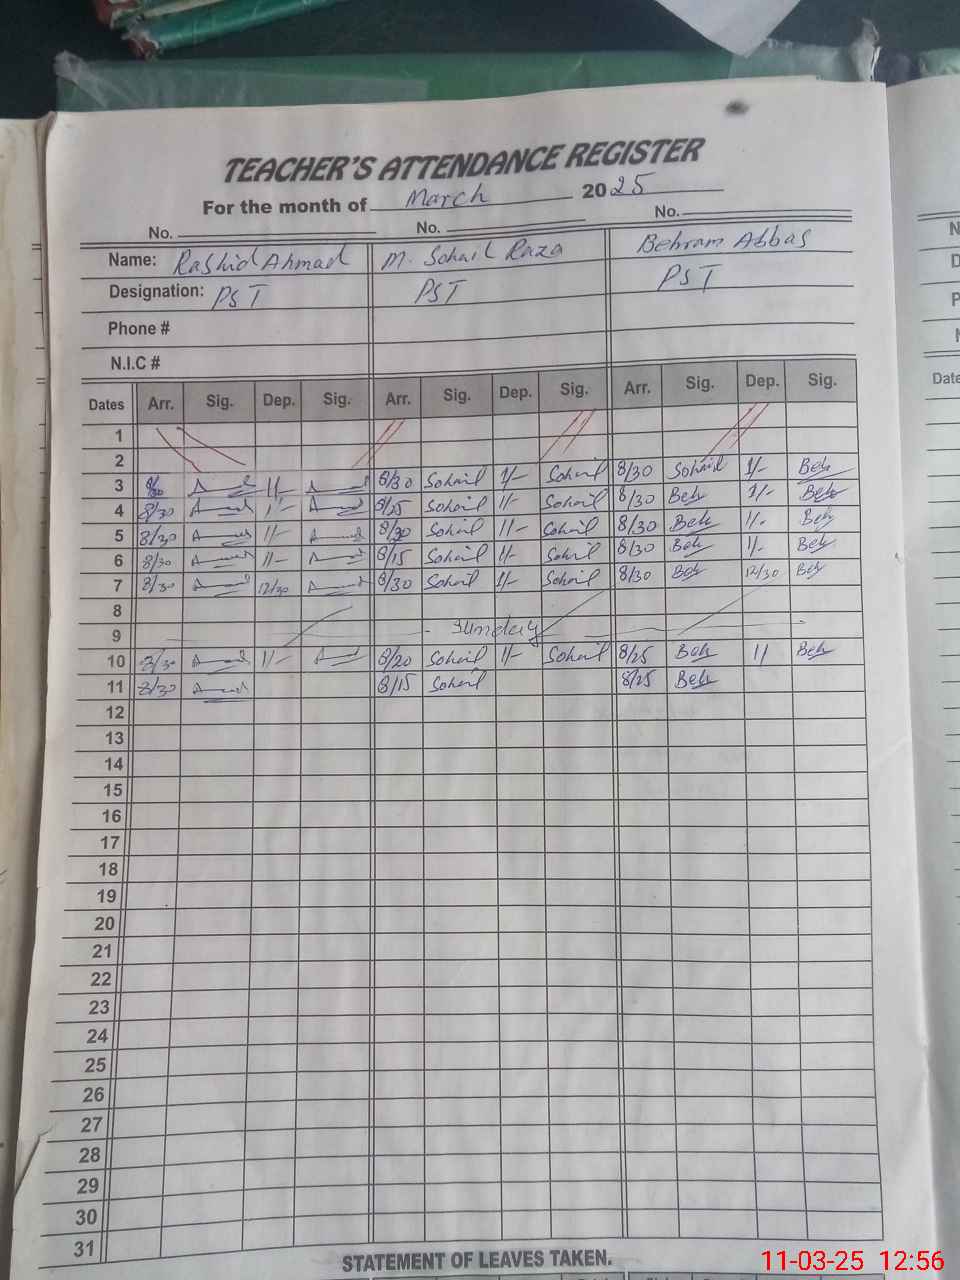 TEACHER'S ATTENDANCE REGISTER
For the month of March 2025
No. No. No.
Name: Rashid Ahmad M. Sohail Raza Behram Abbas
Designation: PST PST PST
Phone #
N.I.C #
Dates Arr. Sig. Dep. Sig. Arr. Sig. Dep. Sig. Arr. Sig. Dep. Sig.
1
2
3 8/30 1/- 8/30 Sohail 1/- Sohail 8/30 Sohail 1/- Beh
4 8/30 1/- 8/25 Sohail 1/- Sohail 8/30 Beh 1/- Beh
5 8/30 1/- 8/30 Sohail 1/- Sohail 8/30 Beh 1/- Beh
6 8/30 1/- 8/15 Sohail 1/- Sohail 8/30 Beh 1/- Beh
7 8/30 12/30 8/30 Sohail 1/- Sohail 8/30 Beh 12/30 Beh
8
9 Sunday
10 8/30 1/- 8/20 Sohail 1/- Sohail 8/25 Beh 1/ Beh
11 8/30 8/15 Sohail 8/25 Beh
12
13
14
15
16
17
18
19
20
21
22
23
24
25
26
27
28
29
30
31
STATEMENT OF LEAVES TAKEN.
11-03-25 12:56
N
D
P
N
Date